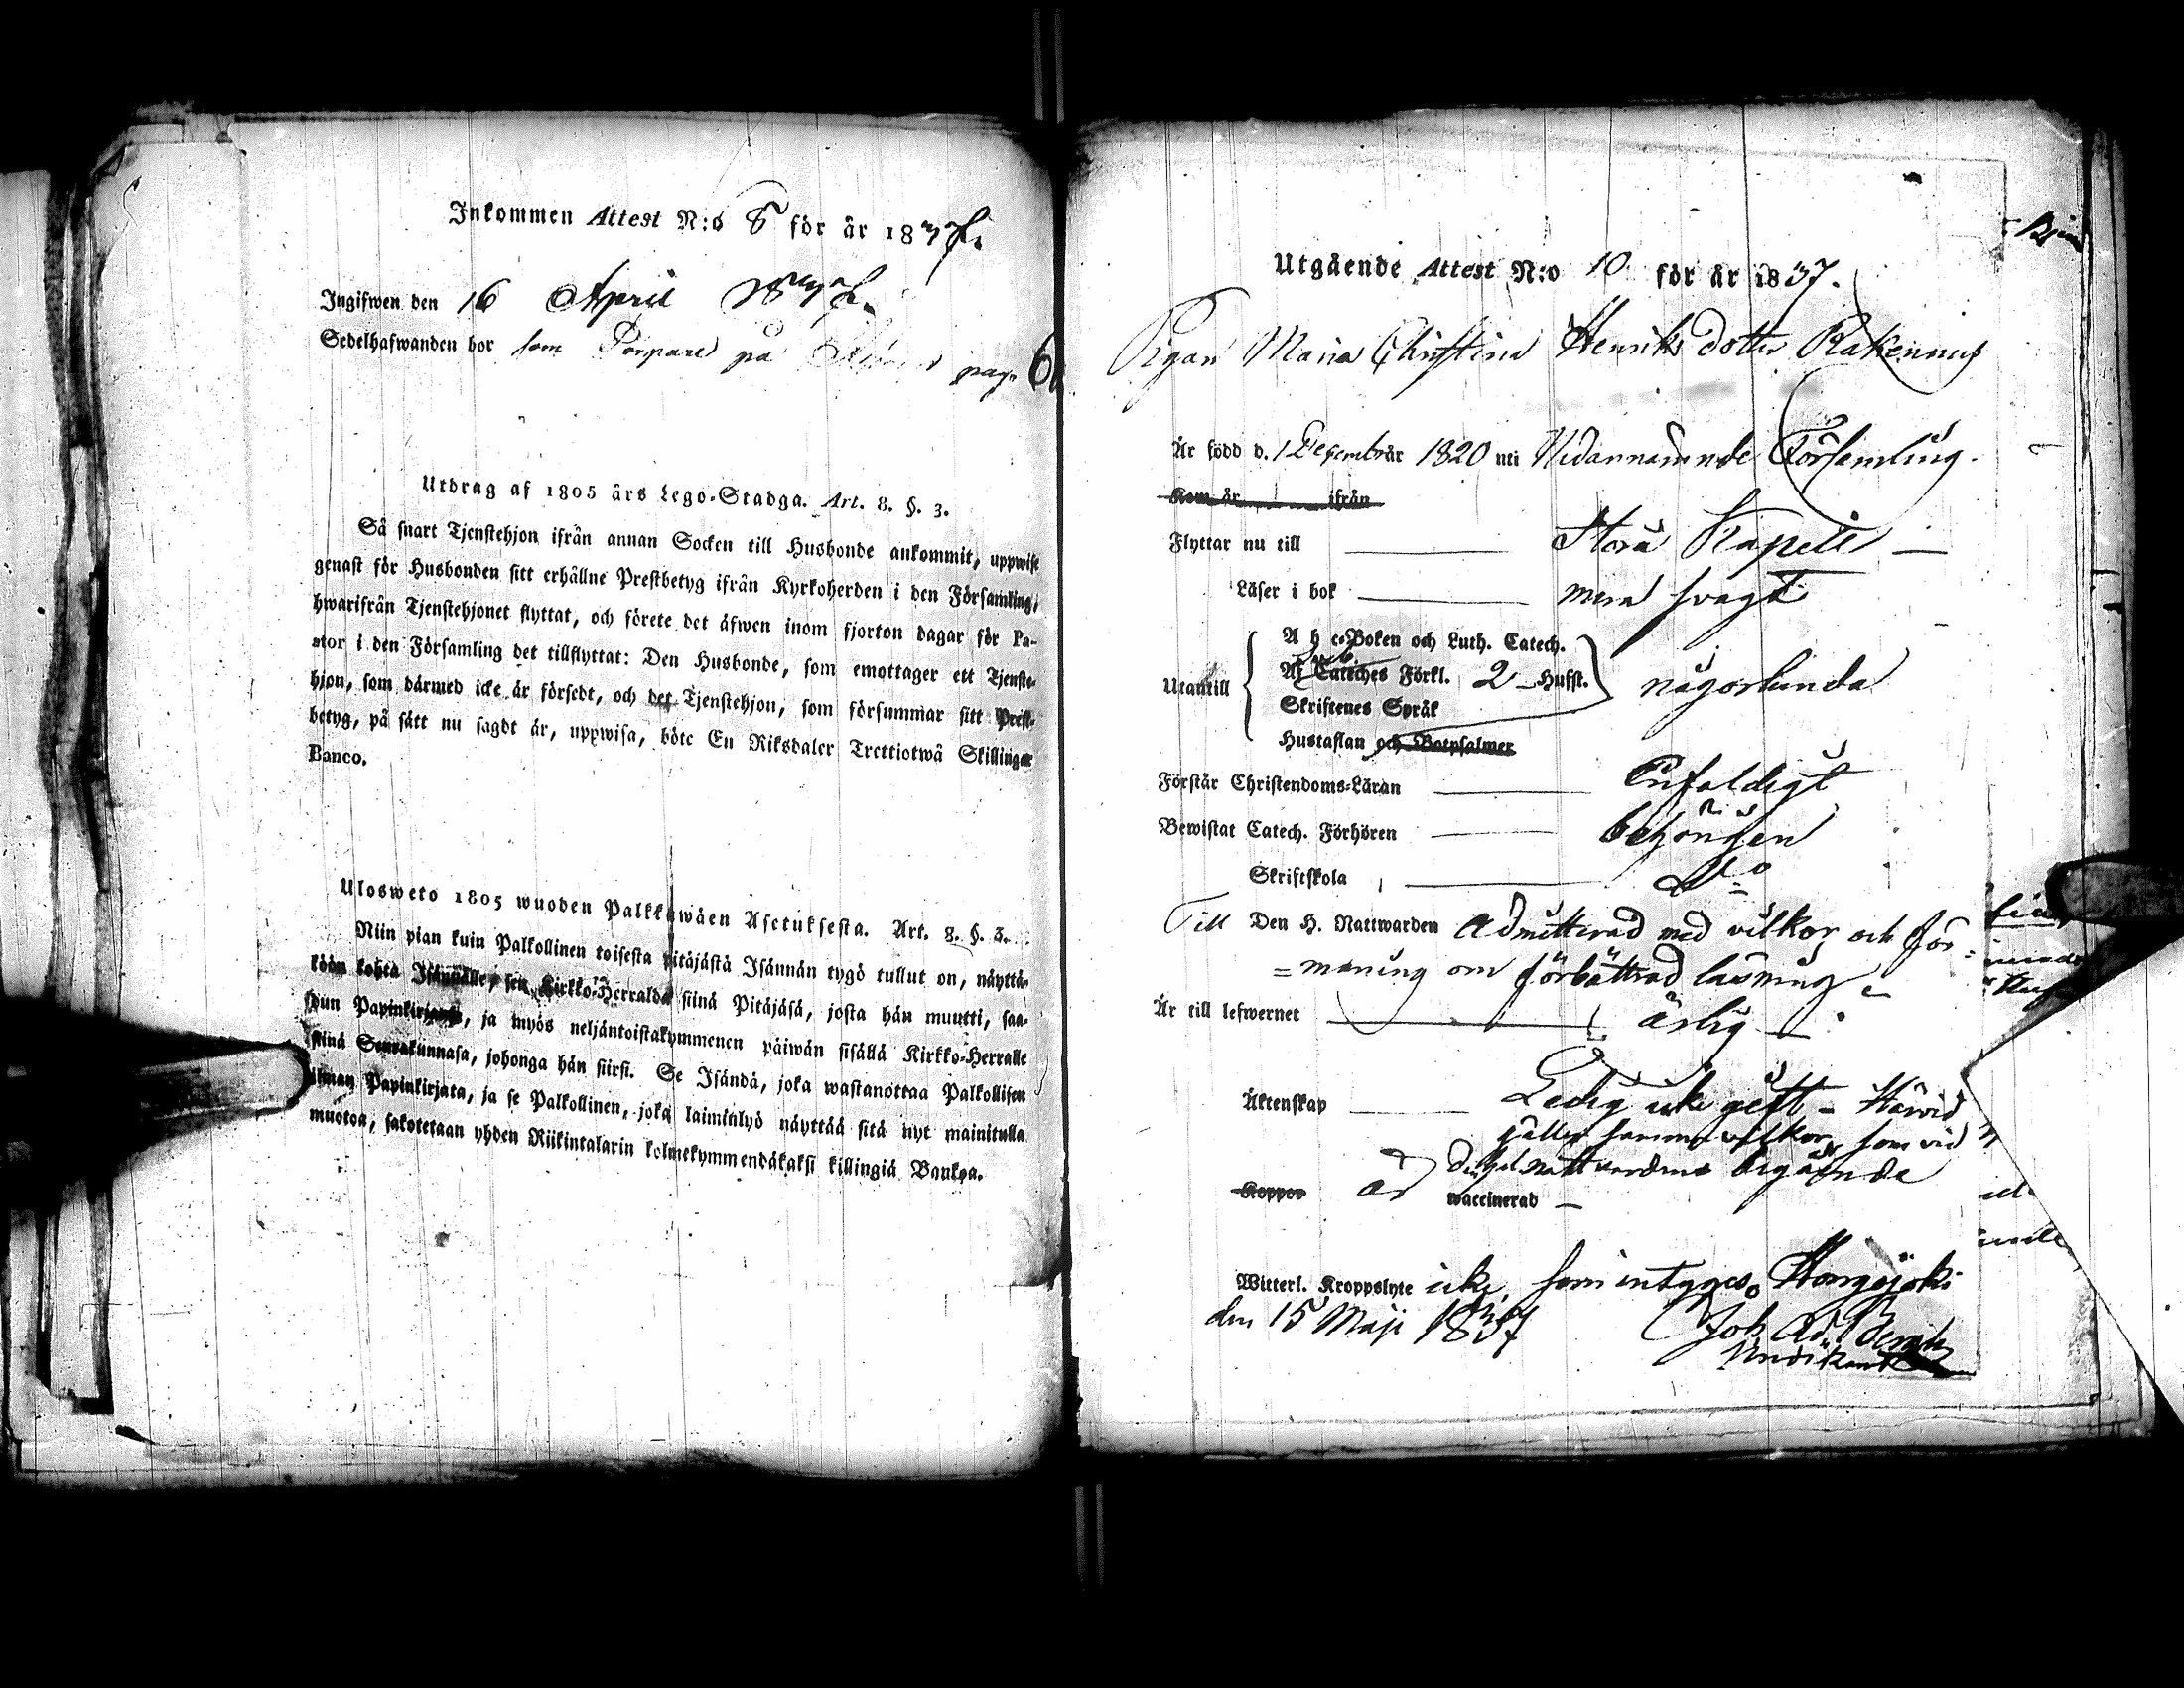 Inkommen Attest N:o 8 för år 1837.
Ingifwen den 16 April 1837.
Sedelhafwanden bor som på pag. 6
Utdrag af 1805 års Lego-Stadga. Art. 8. §. 3.
Så snart Tjenstehjon ifrån annan Socken till Husbonde ankommit, uppwise
genast för Husbonden sitt erhållne Prestbetyg ifrån Kyrkoherden i den Församling,
hwarifrån Tjenstehjonet flyttat, och förete det äfwen inom fjorton dagar för Pa-
stor i den Församling det tillflyttat: Den Husbonde, som emottager ett Tjenste-
hjon, som därmed icke är försedt, och det Tjenstehjon, som försummar sitt Prest-
betyg, på sätt nu sagdt är, uppwisa, böte En Riksdaler Trettiotwå Skillingar
Banco.
Ulosweto 1805 wuoden Palkkawäen Asetuksesta. Art. 8. §. 3.
Niin pian kuin Palkollinen toisesta pitäjästä Isännän tygö tullut on, näyttä-
köön kohta Isännälle, sen Kirkko-Herralda siinä Pitäjäsä, josta hän muutti, saa-
dun Papinkirjansa, ja myös neljäntoistakymmenen päiwän sisällä Kirkko-Herralle
siinä Seurakunnasa, johonga hän siirsi. Se Isändä, joka wastanottaa Palkollisen
ilman Papinkirjata, ja se Palkollinen, joka laiminlyö näyttää sitä nyt mainitulla
muotoa, sakotetaan yhden Riikintalarin kolmekymmendäkaksi killingiä Bankoa.
Utgående Attest N:o 10. för år 1837.
Pigan Maria Christina Henriksdotter Rakennus
Är född d. 1 December år 1820 uti Nidannämnde Församling.
Kom år ifrån
Flyttar nu till Storå Kapell
Läser i bok mera svagt
A b c-Boken och Luth. Catech.
Af Cateches Förkl. 2 Hufst.
Utantill någorlunda
Skriftenes Språk
Hustaflan och Botpsalmer
Förstår Christendoms-Läran Enfaldigt
Bewistat Catech. Förhören behörigen
Skriftskola D:o
Till Den H. Nattwarden Admitterad med vilkor och för=
=maning om förbättrad läsning
Är till lefwernet ärlig
Äktenskap Ledig icke gift - Härvid
gäller samma vilkor, som vid
nattvardens begående
Koppor är waccinerad
Witterl. Kroppslyte icke, som intygas. Hongojoki
den 15 Maji 1837 Joh. Ad.